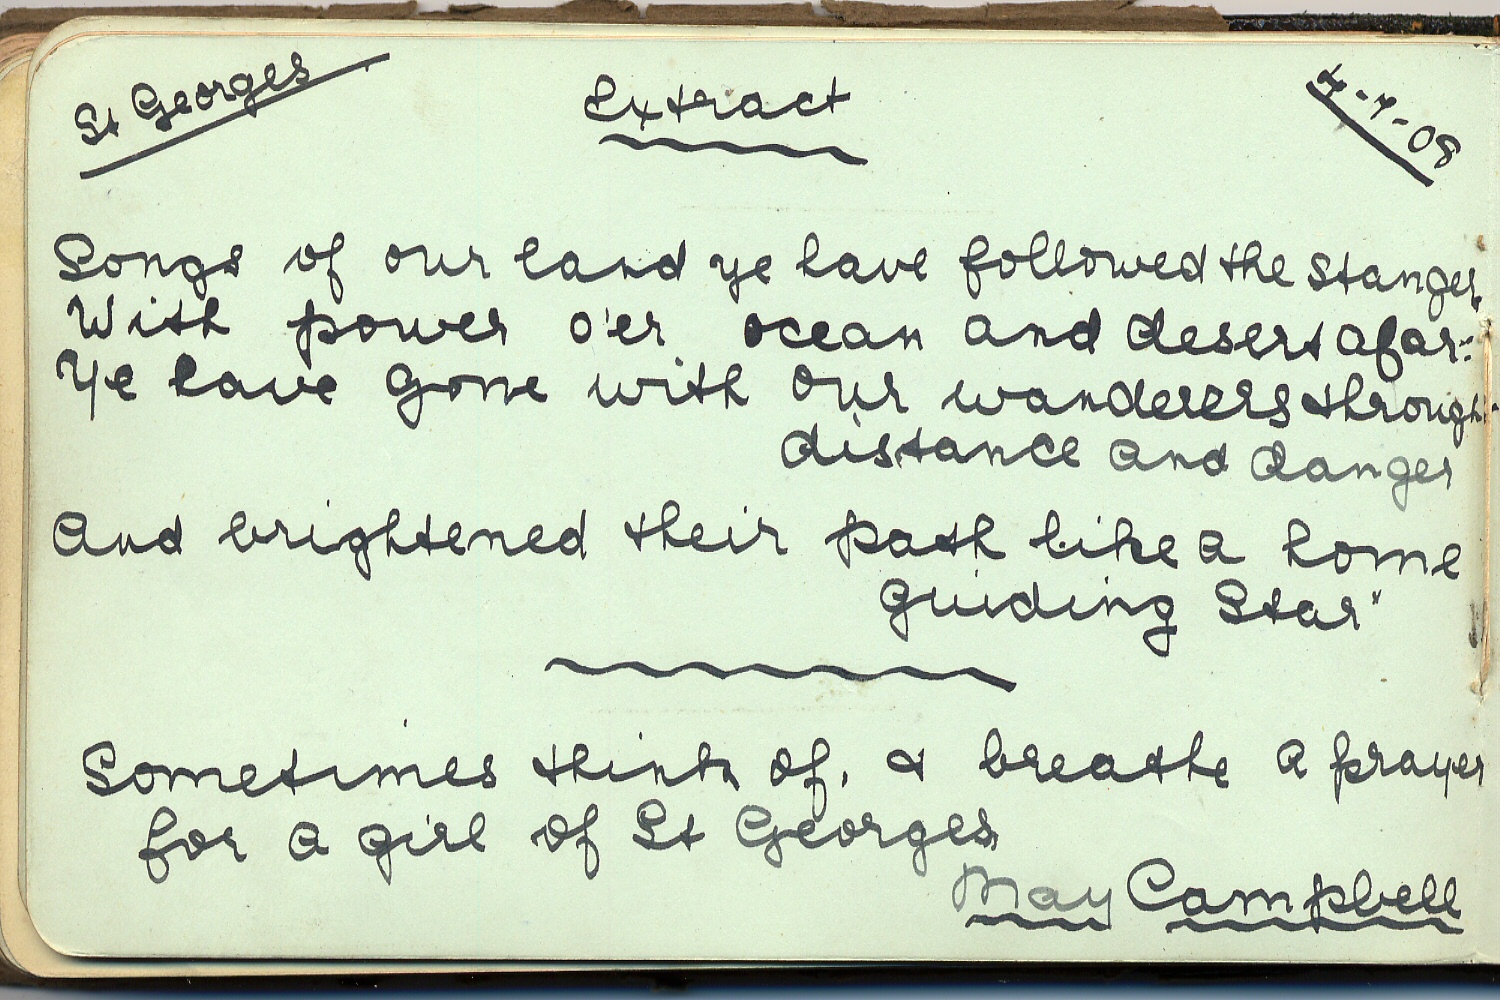 St Georges
Extract
7-7-08
Songs of our land ye have followed the stanger,
With power o'er ocean and desert afar:
Ye have gone with our wanderers through
distance and danger
And brightened their path like a home
guiding Star"
Sometimes think of, & breathe a prayer
for a girl of St Georges
May Campbell